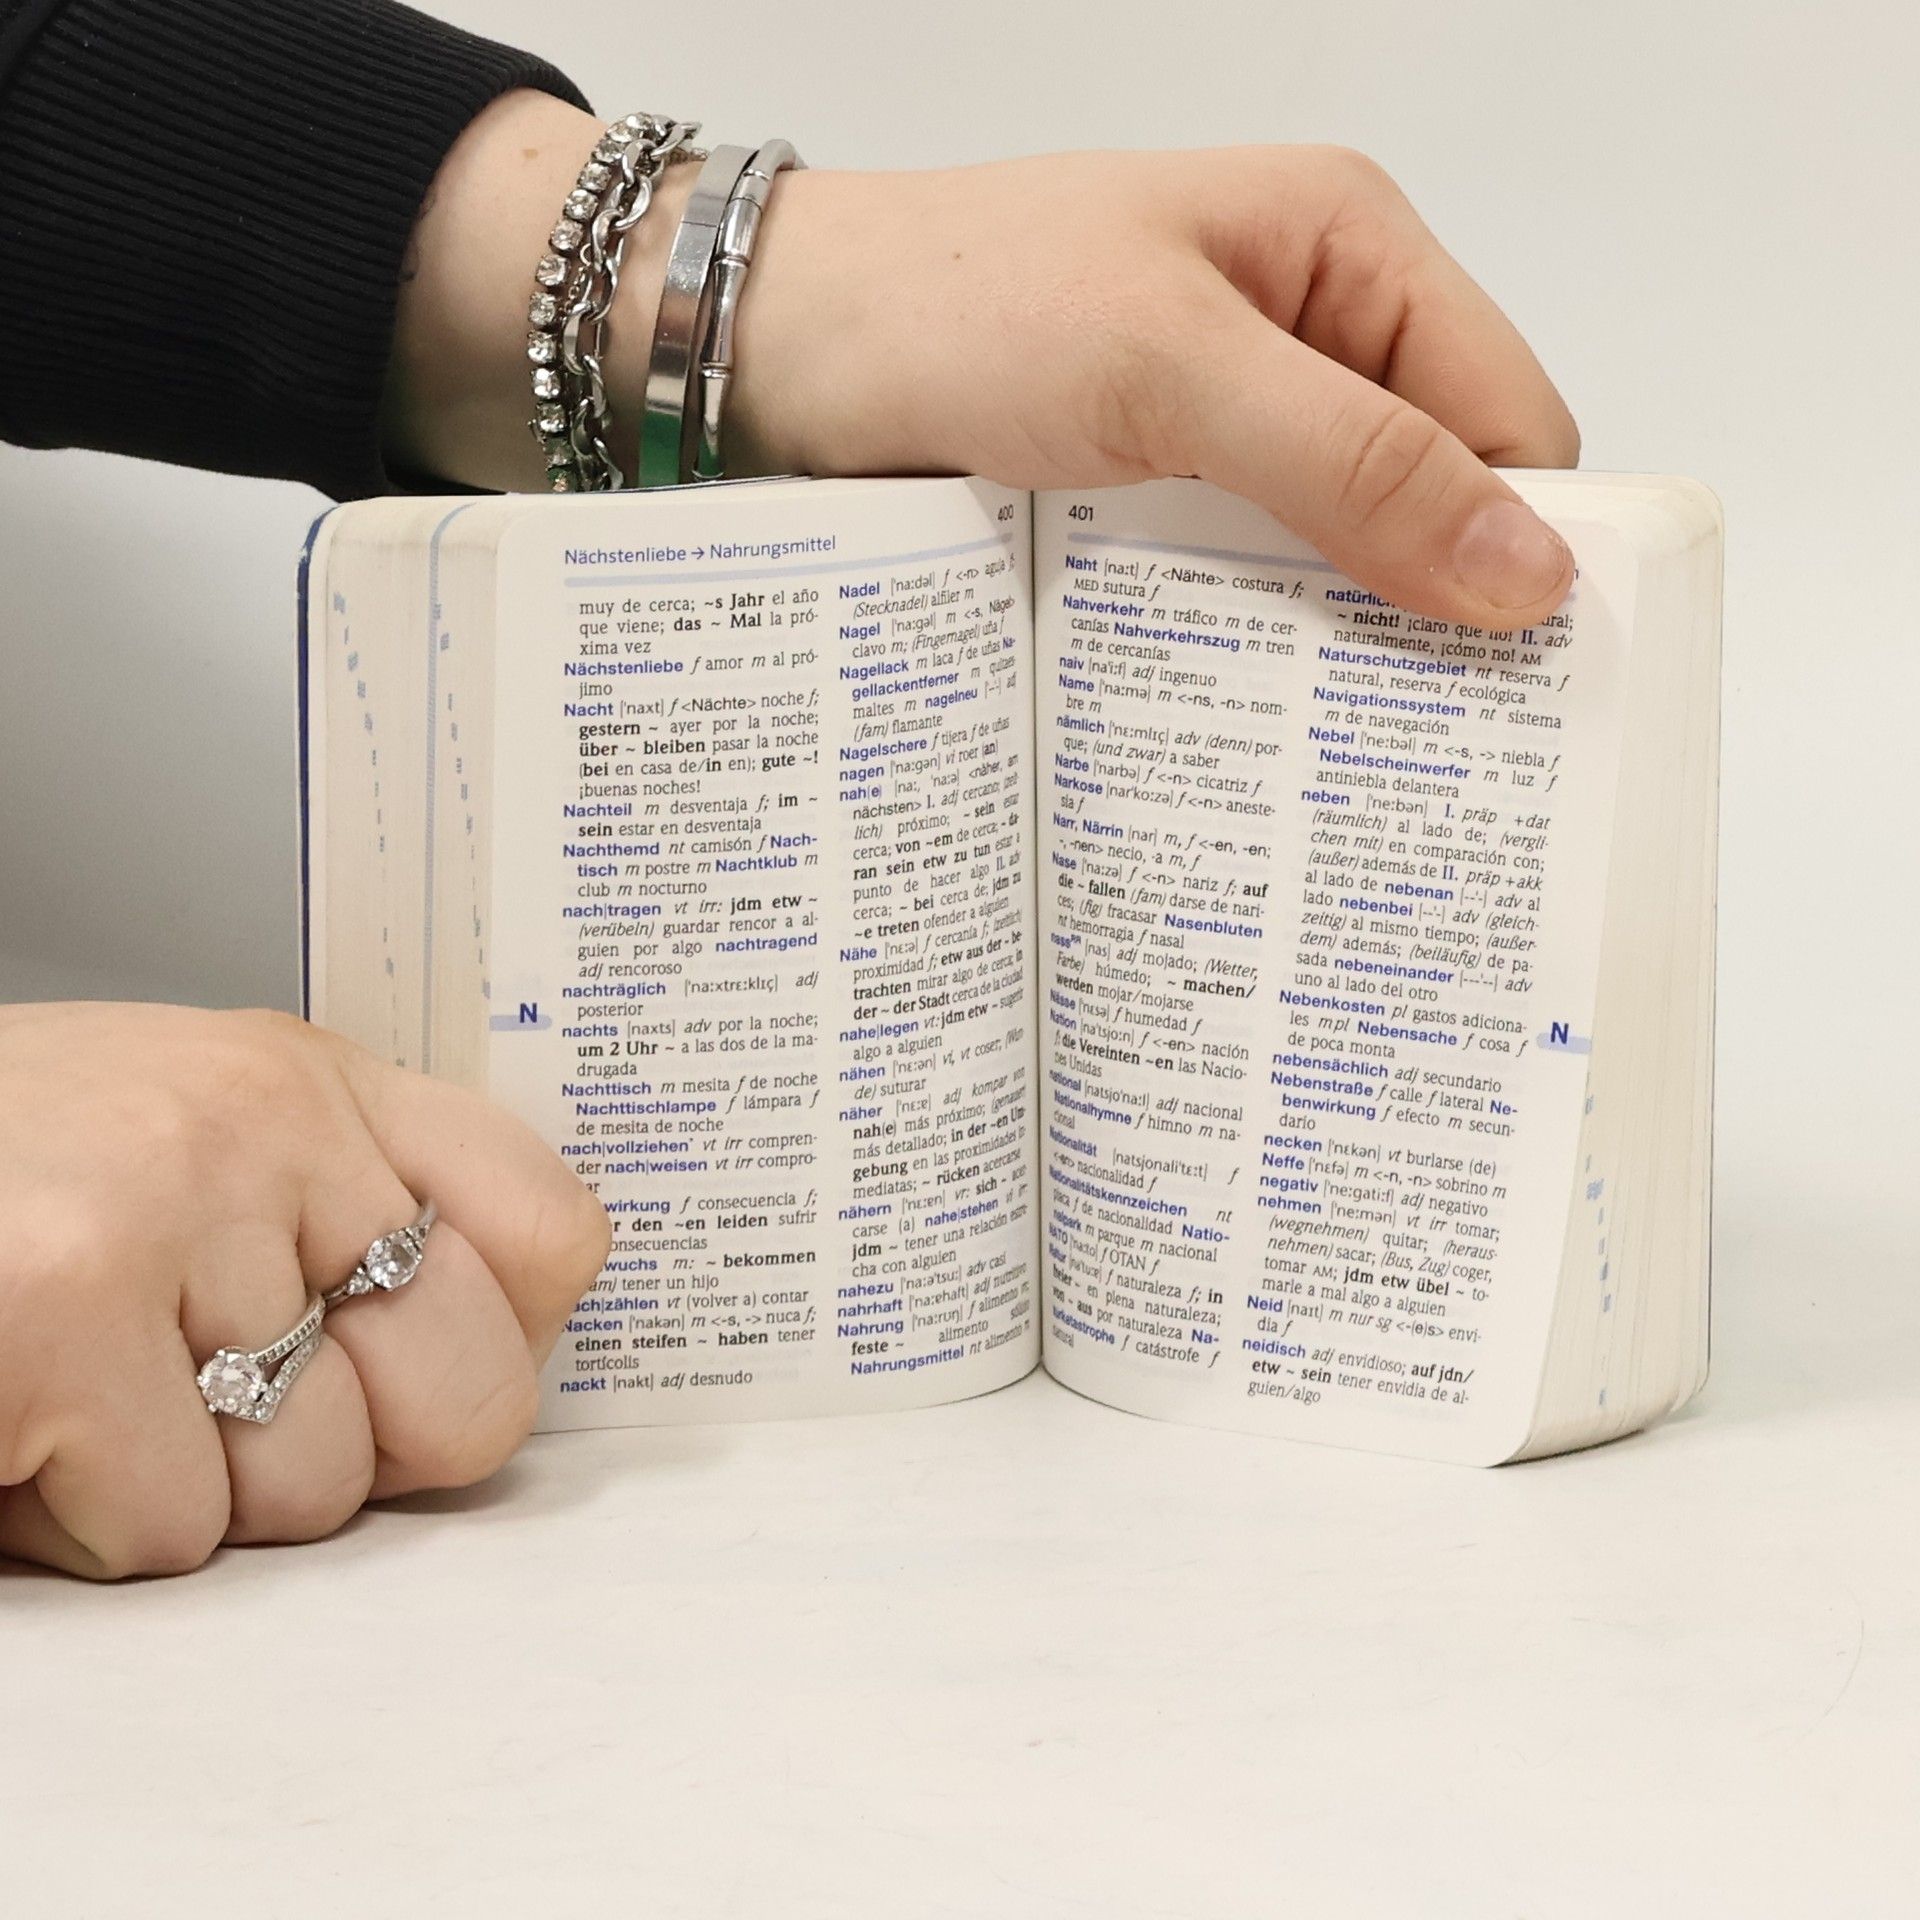 400
Nächstenliebe → Nahrungsmittel
muy de cerca; ~s Jahr el año
que viene; das ~ Mal la pró-
xima vez
Nächstenliebe f amor m al pró-
jimo
Nacht ['naxt] f <Nächte> noche f;
gestern ~ ayer por la noche;
über ~ bleiben pasar la noche
(bei en casa de/in en); gute ~!
¡buenas noches!
Nachteil m desventaja f; im ~
sein estar en desventaja
Nachthemd nt camisón f Nach-
tisch m postre m Nachtklub m
club m nocturno
nach|tragen vt irr: jdm etw ~
(verübeln) guardar rencor a al-
guien por algo nachtragend
adj rencoroso
nachträglich ['na:xtrɛ:klɪç] adj
posterior
nachts [naxts] adv por la noche;
um 2 Uhr ~ a las dos de la ma-
drugada
Nachttisch m mesita f de noche
Nachttischlampe f lámpara f
de mesita de noche
nach|vollziehen* vt irr compren-
der nach|weisen vt irr compro-
ar
wirkung f consecuencia f;
r den ~en leiden sufrir
onsecuencias
wuchs m: ~ bekommen
am) tener un hijo
ach|zählen vt (volver a) contar
Nacken ['nakən] m <-s, -> nuca f;
einen steifen ~ haben tener
tortícolis
nackt [nakt] adj desnudo
N
Nadel ['na:dəl] f <-n> aguja f;
(Stecknadel) alfiler m
Nagel ['na:gəl] m <-s, Nägel>
clavo m; (Fingernagel) uña f
Nagellack m laca f de uñas Na-
gellackentferner m quitaes-
maltes m nagelneu [--'-] adj
(fam) flamante
Nagelschere f tijera f de uñas
nagen ['na:gən] vi roer (an)
nah(e) [na:, 'na:ə] <näher, am
nächsten> I. adj cercano; (zeit-
lich) próximo; ~ sein estar
cerca; von ~em de cerca; ~ da-
ran sein etw zu tun estar a
punto de hacer algo II. adv
cerca; ~ bei cerca de; jdm zu
~e treten ofender a alguien
Nähe ['nɛ:ə] f cercanía f; (zeitlich)
proximidad f; etw aus der ~ be-
trachten mirar algo de cerca; in
der ~ der Stadt cerca de la ciudad
nahe|legen vt: jdm etw ~ sugerir
algo a alguien
nähen ['nɛ:ən] vi, vt coser; (Wun-
de) suturar
näher ['nɛ:ɐ] adj kompar von
nah(e) más próximo; (genauer)
más detallado; in der ~en Um-
gebung en las proximidades in-
mediatas; ~ rücken acercarse
nähern ['nɛ:ɐn] vr: sich ~ acer-
carse (a) nahe|stehen vi irr:
jdm ~ tener una relación estre-
cha con alguien
nahezu ['na:ə'tsu:] adv casi
nahrhaft ['na:ɐhaft] adj nutritivo
Nahrung ['na:rʊŋ] f alimento m;
feste ~ alimento sólido
Nahrungsmittel nt alimento m
401
Naht [na:t] f <Nähte> costura f;
MED sutura f
Nahverkehr m tráfico m de cer-
canías Nahverkehrszug m tren
m de cercanías
naiv [na'i:f] adj ingenuo
Name ['na:mə] m <-ns, -n> nom-
bre m
nämlich ['nɛ:mlɪç] adv (denn) por-
que; (und zwar) a saber
Narbe ['narbə] f <-n> cicatriz f
Narkose [nar'ko:zə] f <-n> aneste-
sia f
Narr, Närrin [nar] m, f <-en, -en;
-, -nen> necio, -a m, f
Nase ['na:zə] f <-n> nariz f; auf
die ~ fallen (fam) darse de nari-
ces; (fig) fracasar Nasenbluten
nt hemorragia f nasal
nass^RR [nas] adj mojado; (Wetter,
Farbe) húmedo; ~ machen/
werden mojar/mojarse
Nässe ['nɛsə] f humedad f
Nation [na'tsjo:n] f <-en> nación
f; die Vereinten ~en las Nacio-
nes Unidas
national [natsjo'na:l] adj nacional
Nationalhymne f himno m na-
cional
Nationalität [natsjonali'tɛ:t] f
<-en> nacionalidad f
Nationalitätskennzeichen nt
placa f de nacionalidad Natio-
nalpark m parque m nacional
NATO ['na:to] f OTAN f
Natur [na'tu:ɐ] f naturaleza f; in
freier ~ en plena naturaleza;
von ~ aus por naturaleza Na-
turkatastrophe f catástrofe f
natural
natürlic
ural;
~ nicht! ¡claro que no! II. adv
naturalmente, ¡cómo no! AM
Naturschutzgebiet nt reserva f
natural, reserva f ecológica
Navigationssystem nt sistema
m de navegación
Nebel ['ne:bəl] m <-s, -> niebla f
Nebelscheinwerfer m luz f
antiniebla delantera
neben ['ne:bən] I. präp +dat
(räumlich) al lado de; (vergli-
chen mit) en comparación con;
(außer) además de II. präp +akk
al lado de nebenan [--'-] adv al
lado nebenbei [--'-] adv (gleich-
zeitig) al mismo tiempo; (außer-
dem) además; (beiläufig) de pa-
sada nebeneinander [---'--] adv
uno al lado del otro
Nebenkosten pl gastos adiciona-
les mpl Nebensache f cosa f
de poca monta
nebensächlich adj secundario
Nebenstraße f calle f lateral Ne-
benwirkung f efecto m secun-
dario
necken ['nɛkən] vt burlarse (de)
Neffe ['nɛfə] m <-n, -n> sobrino m
negativ ['ne:gati:f] adj negativo
nehmen ['ne:mən] vt irr tomar;
(wegnehmen) quitar; (heraus-
nehmen) sacar; (Bus, Zug) coger,
tomar AM; jdm etw übel ~ to-
marle a mal algo a alguien
Neid [naɪt] m nur sg <-(e)s> envi-
dia f
neidisch adj envidioso; auf jdn/
etw ~ sein tener envidia de al-
guien/algo
N